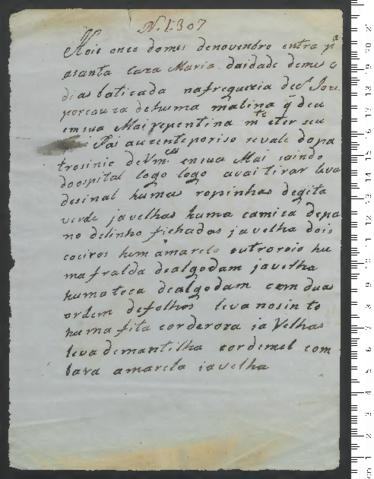 N. 1307
Hoie onze domes denovenbro entra pª
asanta Caza Maria daidade deme
dias batizada nafreguezia de S. Joze
porcauza dehuma malina q̃ deu
emsua Mai repentina mte eter seu
Pai auzente poriso sevale dopa
trosinio deVmces ensua Mai saindo
doospital logo logo avaitirar leva
desinal humas ropinhas dexita
verde javelhas huma camiza depa
no delinho fichadas javelha dois
coeiros hum amarelo outro roio hu
ma fralda dealgodam javelha
huma toca dealgodam com duas
ordem defolhos leva nosinto
huma fita corderoza ja Velhas
leva demantilha cordemel com
bara amarela javelha